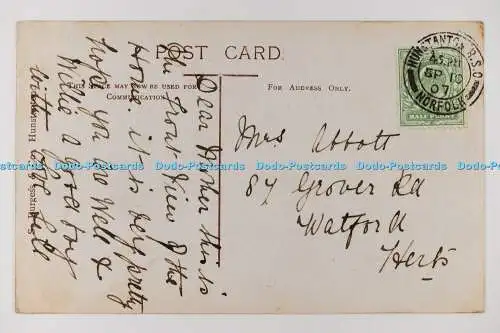 POST CARD.
THIS SPACE MAY NOW BE USED FOR
COMMUNICATION.
FOR ADDRESS ONLY.
HUNSTANTON R.S.O.
SP 10
07
NORFOLK
HALFPENNY
Mrs Abbott
87 Grover Rd
Watford
Herts
Dear Mother this is
the front view of the
Home it is very pretty
hope you are well &
Willie a good boy
with love
Hunstanton
Dodo-Postcards Dodo-Postcards Dodo-Postcards Dodo-Postcards Dodo-Postcards